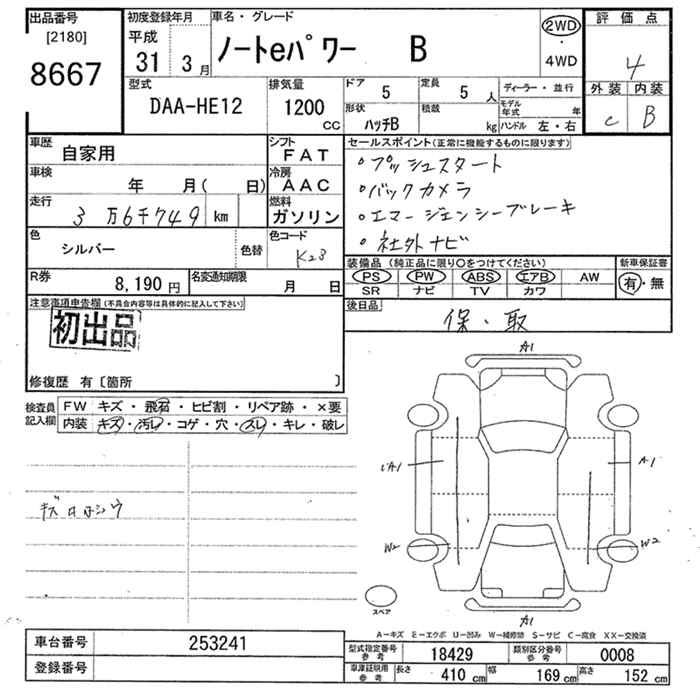 出品番号
[2180]
8667
初度登録年月
平成
31 3月
車名・グレード
ノートeパワー B
2WD
・
4WD
評価点
4
外装 内装
C B
型式
DAA-HE12
排気量
1200
CC
ドア
5
定員
5人
形状
ハッチB
積載
kg
ディーラー・並行
モデル年式 年
ハンドル 左・右
車歴
自家用
シフト
FAT
車検
年 月( 日)
冷房
AAC
走行
3万6千749 km
燃料
ガソリン
色
シルバー
色替
色コード
K23
R券
8,190円
名変通知期限
月 日
セールスポイント(正常に機能するものに限ります)
・プッシュスタート
・バックカメラ
・エマージェンシーブレーキ
・社外ナビ
装備品(純正品に限り○をつけてください)
PS PW ABS エアB AW
SR ナビ TV カワ
新車保証書
有・無
後日品
保・取
注意事項申告欄(不具合内容等は具体的に記入して下さい)
初出品
修復歴 有〔箇所 〕
検査員
記入欄
FW キズ・飛石・ヒビ割・リペア跡・×要
内装 キズ・汚レ・コゲ・穴・スレ・キレ・破レ
A1
A1
A1
W2
W2
A1
スペア
A-キズ E-エクボ U-凹み W-補修跡 S-サビ C-腐食 XX-交換済
車台番号 253241
登録番号
型式指定番号
参考
18429
類別区分番号
参考
0008
車庫証明用
参考
長さ 410cm 幅 169cm 高さ 152cm